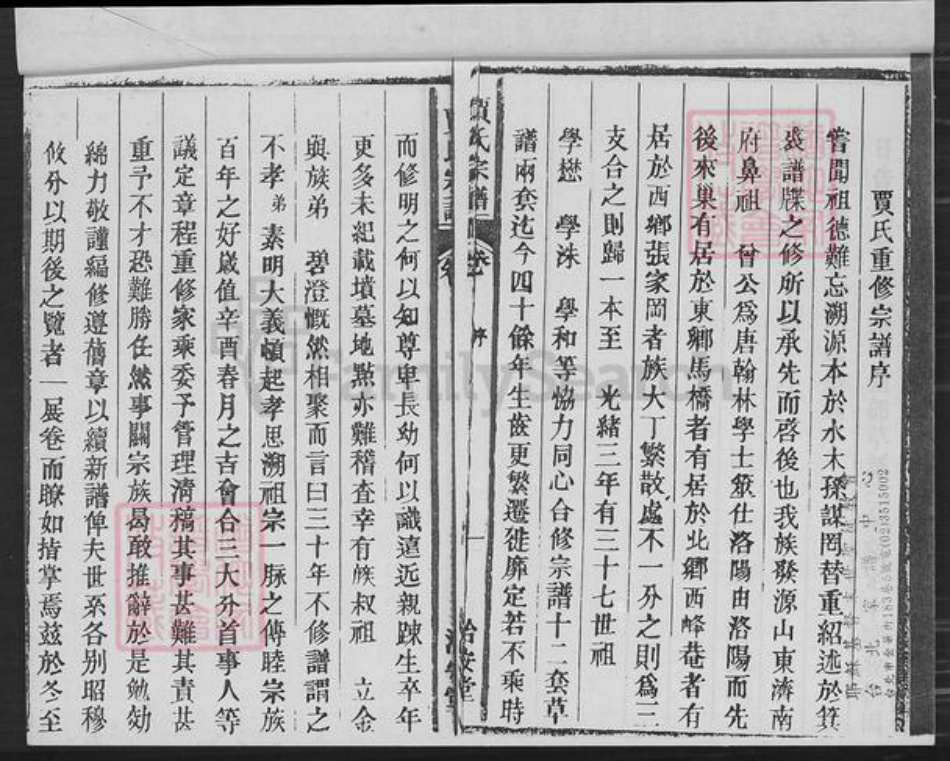 賈氏重修宗譜序
嘗聞祖德難忘溯源本於水木孫謀罔替重紹述於箕
裘譜牒之修所以承先而啓後也我族發源山東濟南
府鼻祖 曾公爲唐翰林學士筮仕洛陽由洛陽而先
後來巢有居於東鄉馬橋者有居於北鄉西峰菴者有
居於西鄉張家岡者族大丁繁散處不一分之則爲三
支合之則歸一本至 光緒三年有三十七世祖
學懋 學洙 學和等協力同心合修宗譜十二套草
譜兩套迄今四十餘年生齒更繁遷徙靡定若不乘時
賈氏宗譜
序
一
治安堂
而修明之何以知尊卑長幼何以識遠近親踈生卒年
更多未紀載墳墓地點亦難稽查幸有族叔祖 立金
與族弟 碧澄慨然相聚而言曰三十年不修譜謂之
不孝 弟 素明大義頓起孝思溯祖宗一脉之傳睦宗族
百年之好歲值辛酉春月之吉會合三大分首事人等
議定章程重修家乘委予管理清稿其事甚難其責甚
重予不才恐難勝任然事關宗族曷敢推辭於是勉効
綿力敬謹編修遵舊章以續新譜俾夫世系各別昭穆
攸分以期後之覽者一展卷而瞭如指掌焉茲於冬至
台北家譜中心
FamilySearch